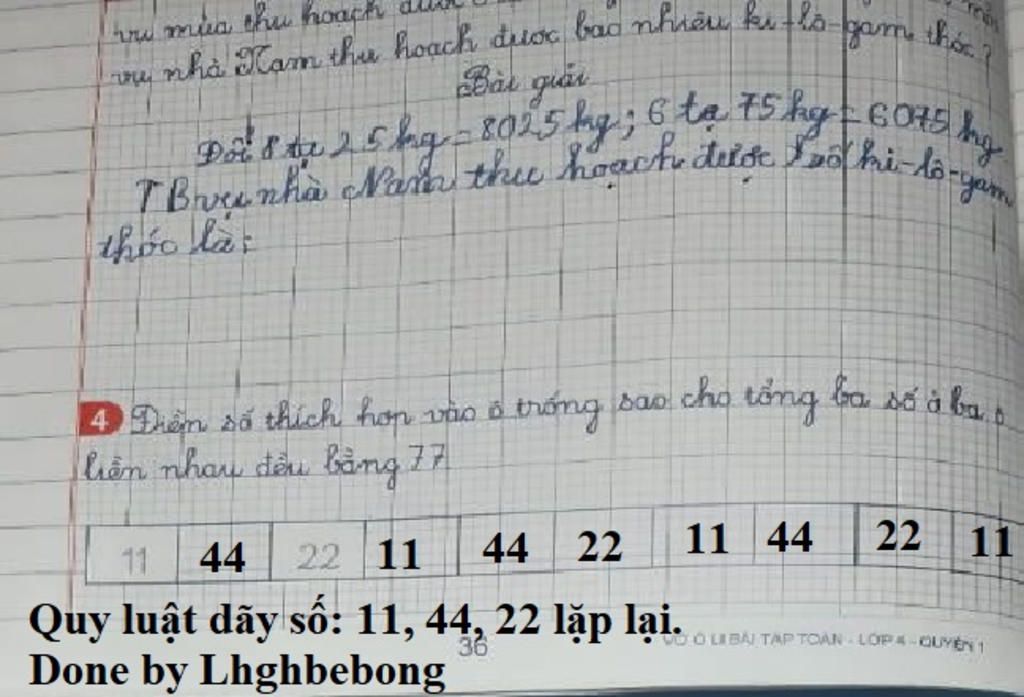 vụ mùa thu hoạch được
vụ nhà Nam thu hoạch được bao nhiêu ki-lô-gam thóc?
Bài giải
Đổi 8 tạ 25 kg = 8025 kg; 6 tạ 75 kg = 6075 kg
TB vụ nhà Nam thu hoạch được số ki-lô-gam
thóc là:
4 Điền số thích hợp vào ô trống sao cho tổng ba số ở ba ô
liền nhau đều bằng 77
11 44 22 11 44 22 11 44 22 11
Quy luật dãy số: 11, 44, 22 lặp lại.
36 VỞ Ô LI BÀI TẬP TOÁN - LỚP 4 - QUYỂN 1
Done by Lhghbebong